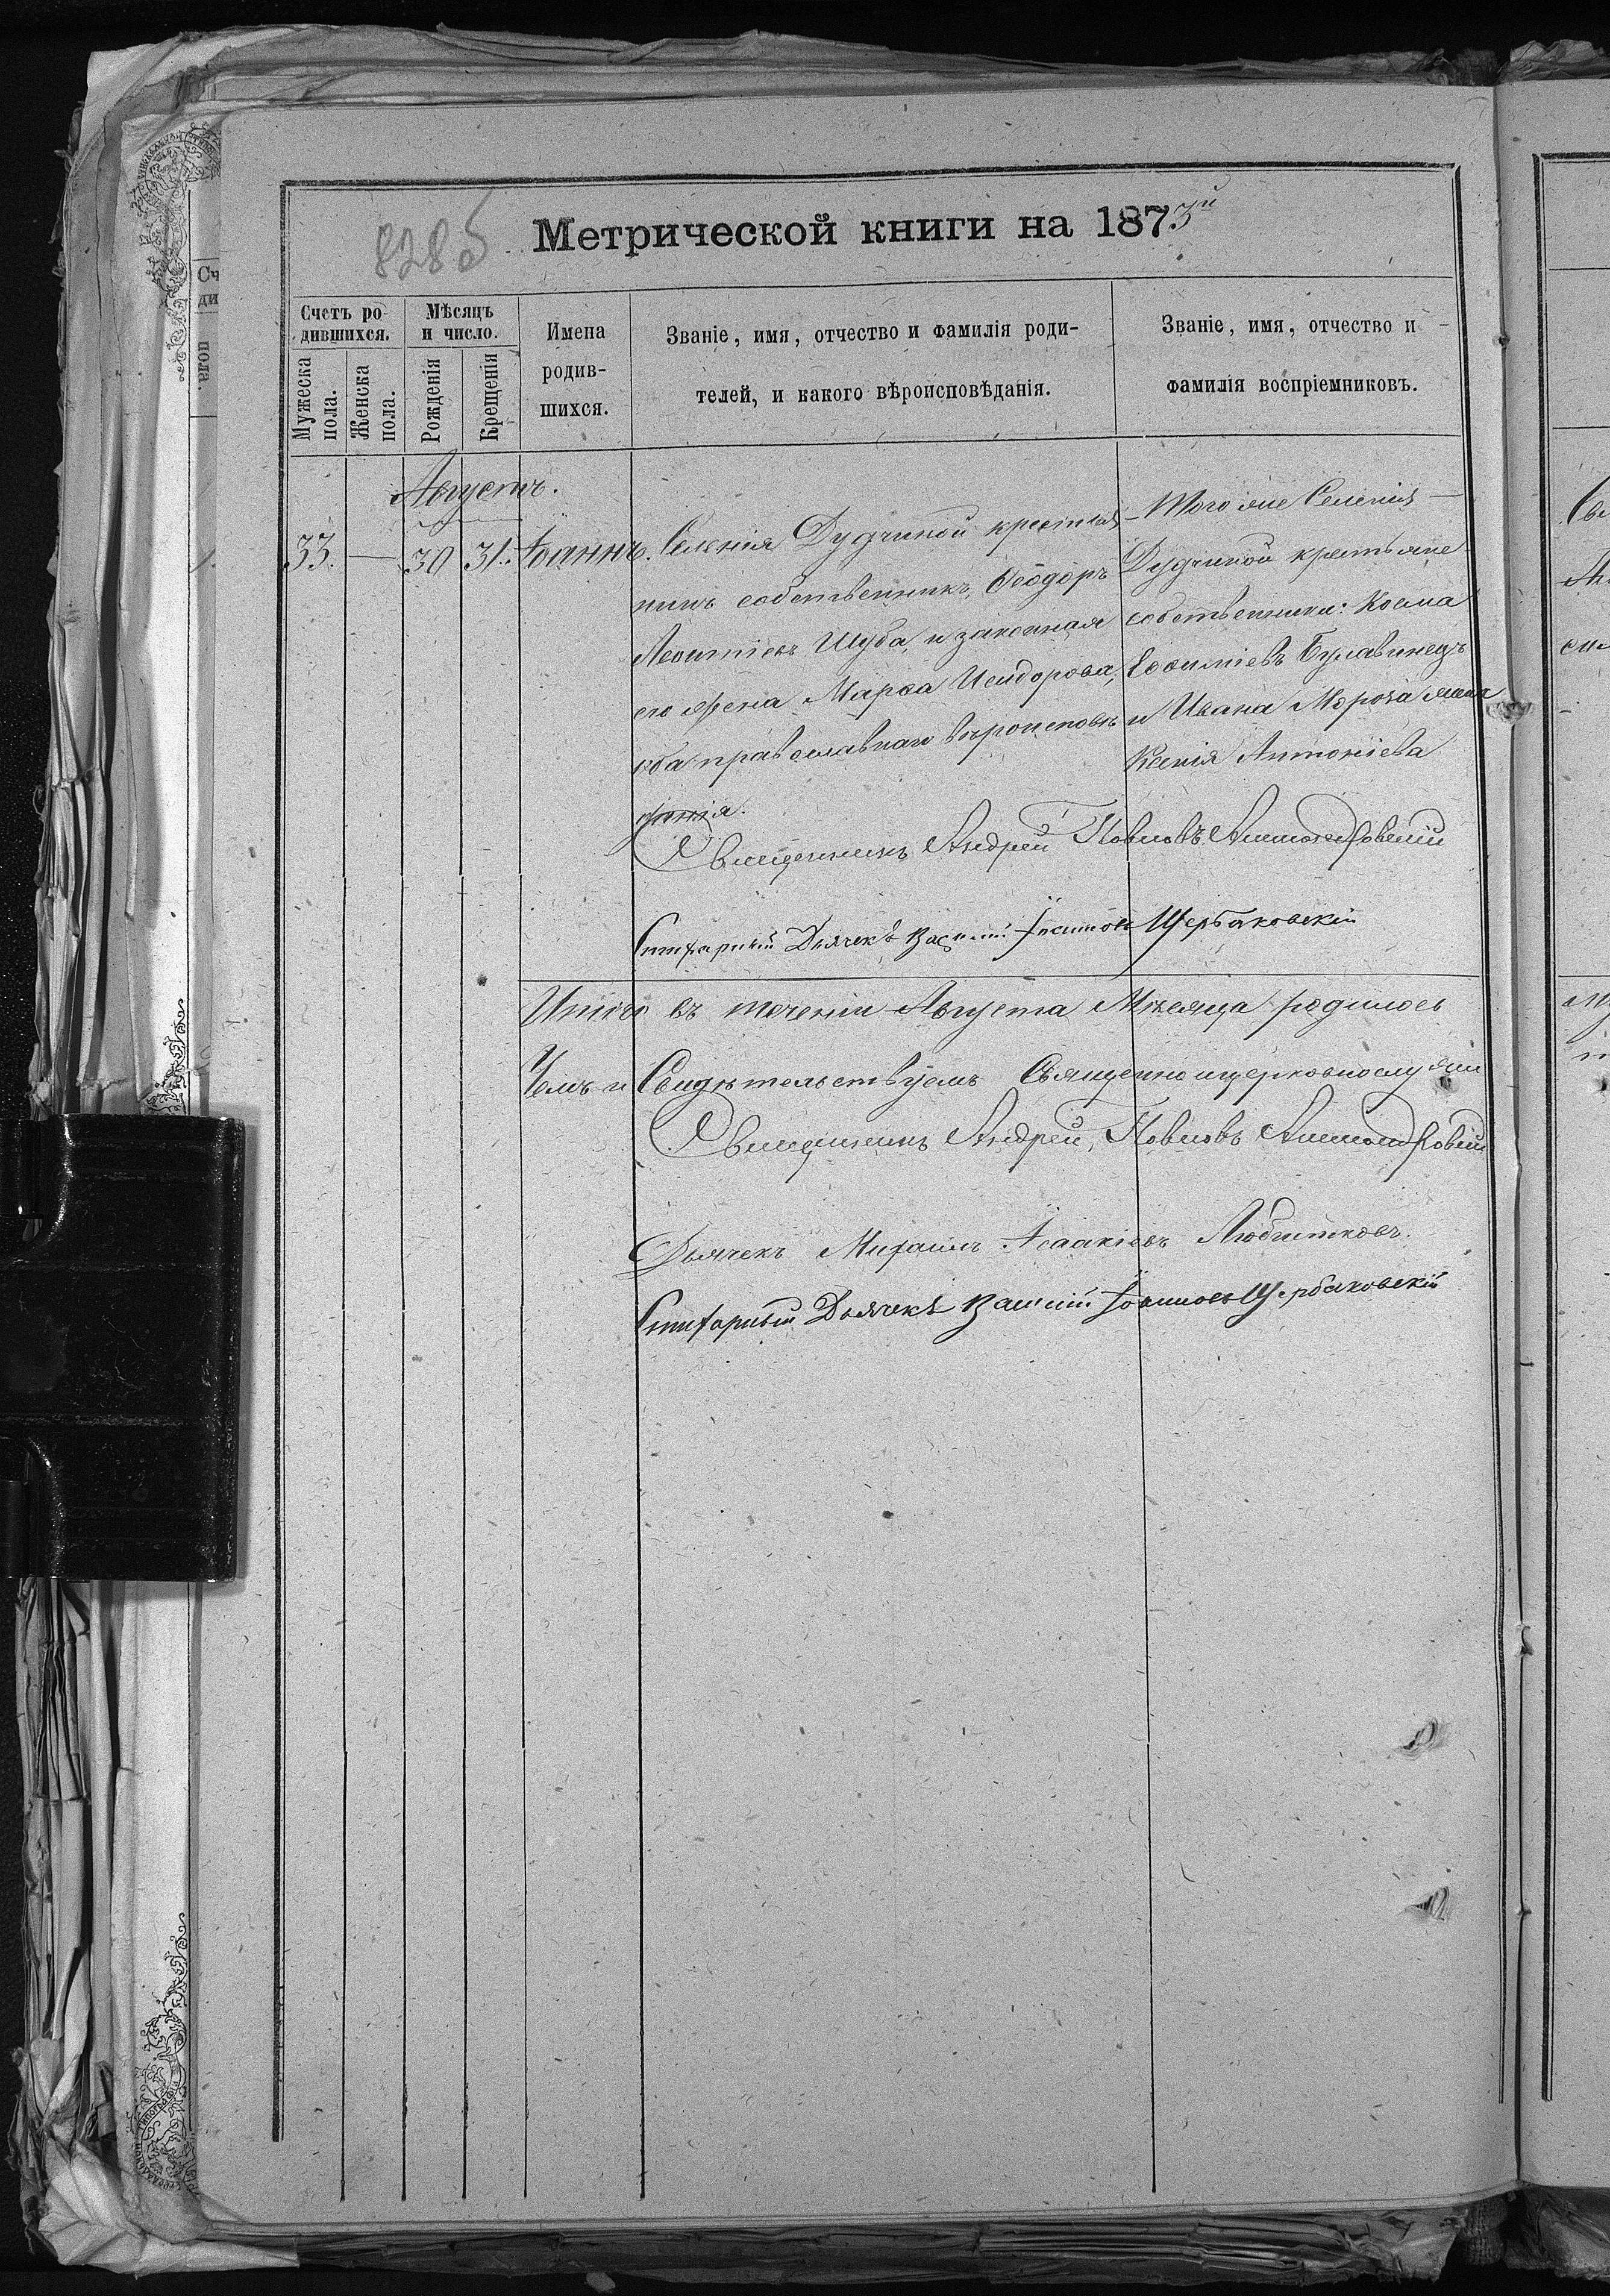 828б
Метрической книги на 1873й
Счетъ родившихся.
Мѣсяцъ и число.
Мужеска пола.
Женска пола.
Рожденія
Крещенія
Имена родив-шихся.
Званіе, имя, отчество и фамилія роди-
телей, и какого вѣроисповѣданія.
Званіе, имя, отчество и
фамилія воспріемниковъ.
Августъ.
33. — 30 31. Іоаннъ.
Селенія Дудчиной крестья-
нинъ собственникъ, Ѳеодоръ
Леонтіевъ Шуба, и законная
его жена Марѳа Исидорова,
оба православнаго вѣроисповѣ
данія.
Того же Селенія —
Дудчиной крестьяне
собственники: Косма
Евѳиміевъ Булавинецъ
и Ивана Мороза жена
Ксенія Антоніева
Священникъ Андрей Павловъ
Стихарный Дьячекъ Василій Іоанновъ Щербаковскій
Итого въ теченіи Августа Мѣсяца родилось
Чемъ и Свидѣтельствуемъ Священно и церковнослужи
Священникъ Андрей Павловъ
Дьячекъ Михаилъ Ісаакіевъ
Стихарный Дьячекъ Василій Іоанновъ Щербаковскій